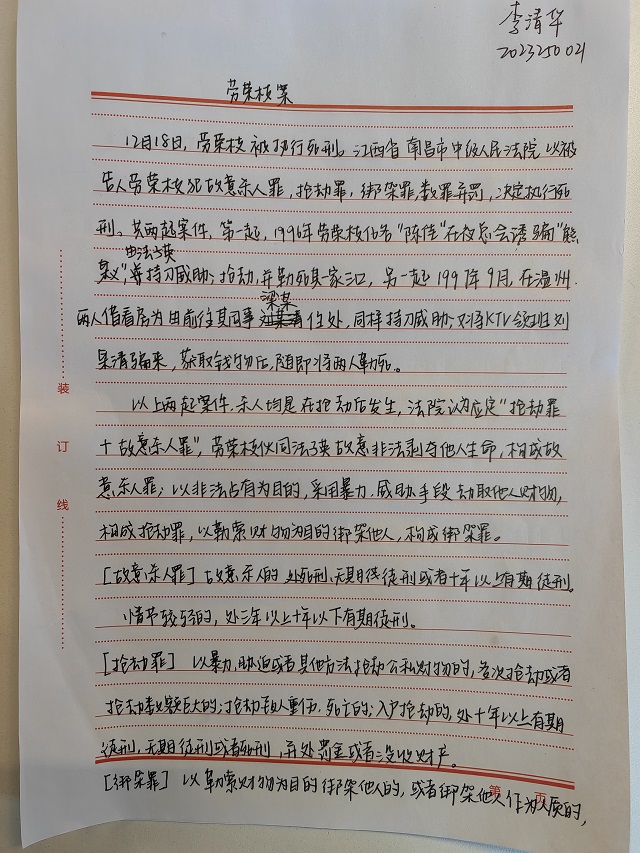 李清华
202325002
劳荣枝案
12月18日，劳荣枝被执行死刑。江西省南昌市中级人民法院以被
告人劳荣枝犯故意杀人罪，抢劫罪，绑架罪，数罪并罚，决定执行死
刑。共两起案件，第一起，1996年劳荣枝化名“陈佳”在夜总会诱骗“熊
由法子英
某义”，持刀威胁；抢劫，并勒死其一家三口，另一起1997年9月，在温州.
梁某
两人借看房为由前往其同事住处，同样持刀威胁；对将KTV领班刘
某清骗来，获取钱物后，随即将两人勒死。
以上两起案件.杀人均是在抢劫后发生，法院认为应定“抢劫罪
十故意杀人罪”，劳荣枝伙同法子英故意非法剥夺他人生命，构成故
意杀人罪；以非法占有为目的，采用暴力.威胁手段劫取他人财物，
构成抢劫罪，以勒索财物为目的绑架他人，构成绑架罪。
[故意杀人罪]故意杀人的处死刑.无期徒徒刑或者十年以上有期徒刑.
情节较轻的，处三年以上十年以下有期徒刑。
[抢劫罪] 以暴力.胁迫或者其他方法抢劫公私财物的，多次抢劫或者
抢劫数额巨大的；抢劫致人重伤.死亡的；入户抢劫的，处十年以上有期
徒刑，无期徒刑或者死刑，并处罚金或者没收财产。
[绑架罪] 以勒索财物为目的绑架他人的，或者绑架他人作为人质的，
第 页
装
订
线